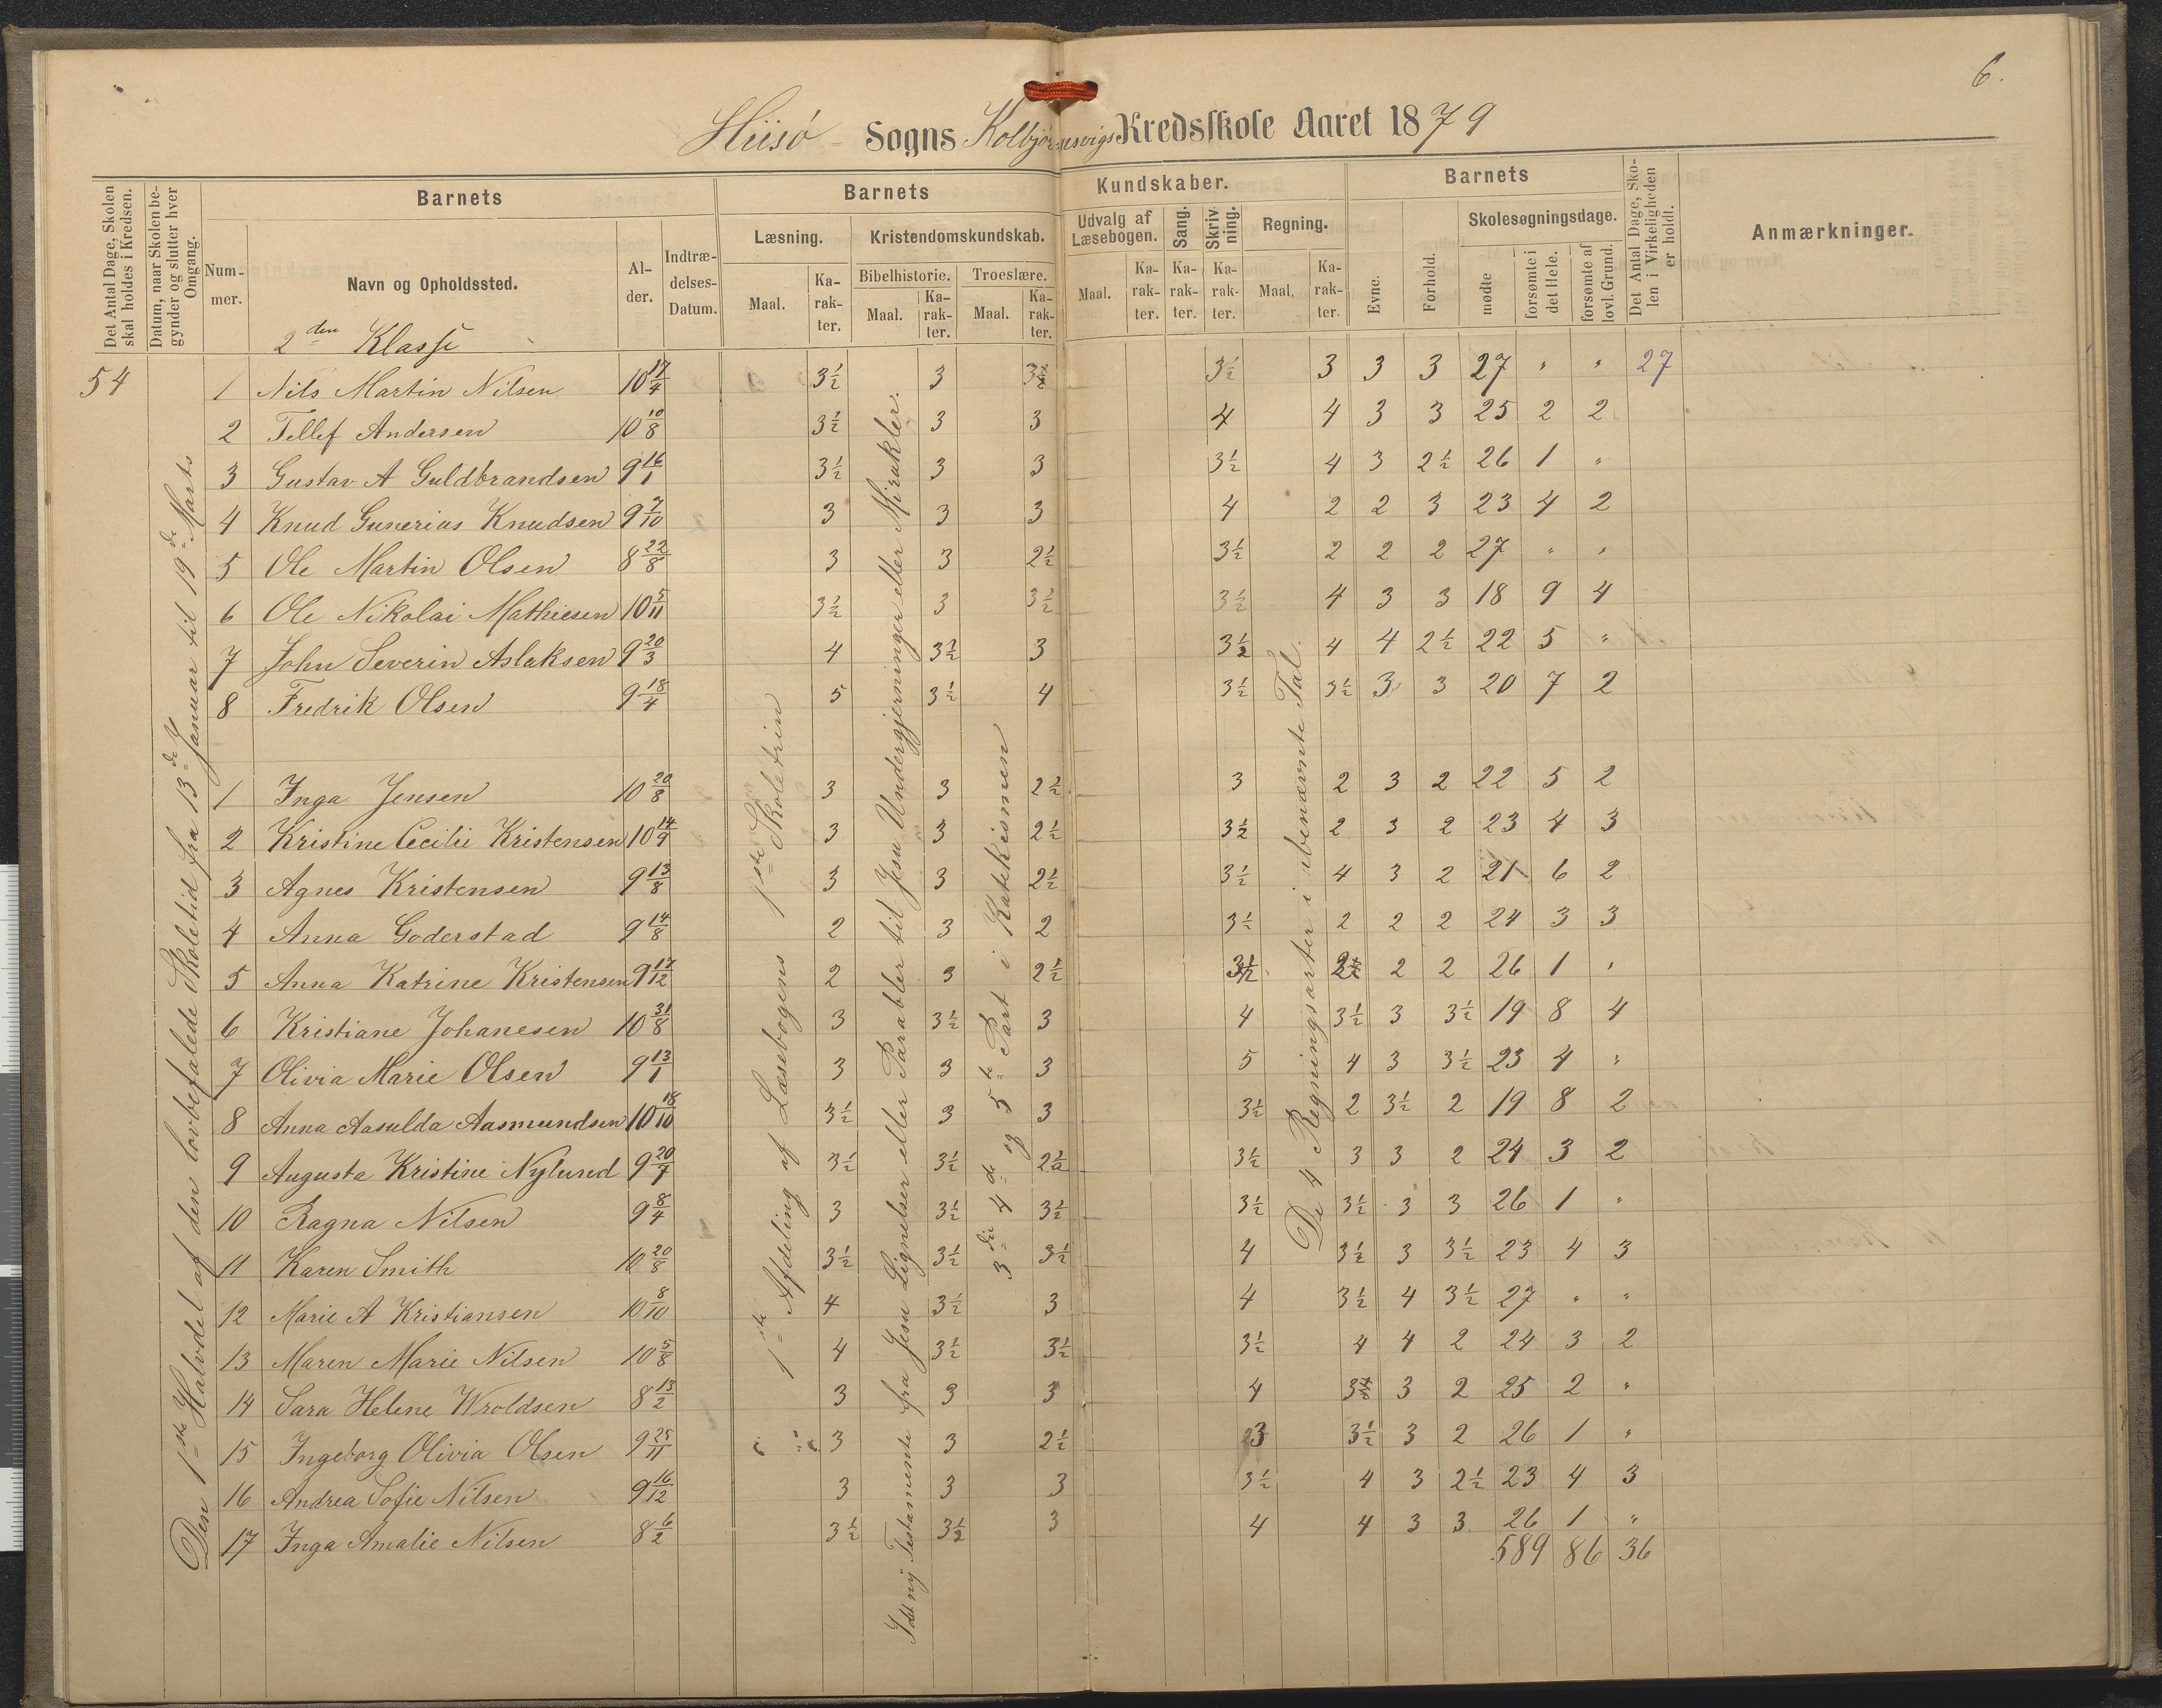 6.
Hiisö - Sogns Kolbjørnsvigs Kredsskole Aaret 1879
Det Antal Dage, Skolen skal holdes i Kredsen.
Datum, naar Skolen begynder og slutter hver Omgang.
Barnets
Nummer.
Navn og Opholdssted.
Alder.
Indtrædelses-Datum.
Barnets Kundskaber.
Læsning.
Maal.
Karakter.
Kristendomskundskab.
Bibelhistorie.
Maal.
Karakter.
Troeslære.
Maal.
Karakter.
Udvalg af Læsebogen.
Maal.
Karakter.
Sang.
Karakter.
Skrivning.
Karakter.
Regning.
Maal.
Karakter.
Barnets
Evne.
Forhold.
Skolesøgningsdage.
mødte
forsømte i det Hele.
forsømte af lovl. Grund.
Det Antal Dage, Skolen i Virkeligheden er holdt.
Anmærkninger.
2den Klasse
54 1 Nils Martin Nilsen 10 17/4 3½ 3 3½ 3½ 3 3 3 27 " " 27
2 Tellef Andersen 10 10/8 3½ 3 3 4 4 3 3 25 2 2
3 Gustav A Guldbrandsen 9 16/1 3½ 3 3 3½ 4 3 2½ 26 1 "
4 Knud Gunerius Knudsen 9 7/10 3 3 3 4 2 2 3 23 4 2
5 Ole Martin Olsen 8 22/8 3 3 2½ 3½ 2 2 2 27 " "
6 Ole Nikolai Mathiesen 10 5/11 3½ 3 3½ 3½ 4 3 3 18 9 4
7 John Severin Aslaksen 9 20/3 4 3½ 3 3½ 4 4 2½ 22 5 "
8 Fredrik Olsen 9 18/4 5 3½ 4 3½ 3½ 3 3 20 7 2
1 Inga Jensen 10 20/8 3 3 2½ 3 2 3 2 22 5 2
2 Kristine Cecilie Kristensen 10 14/9 3 3 2½ 3½ 2 3 2 23 4 3
3 Agnes Kristensen 9 13/8 3 3 2½ 3½ 4 3 2 21 6 2
4 Anna Goderstad 9 14/8 2 3 2 3½ 2 2 2 24 3 3
5 Anna Katrine Kristensen 9 17/12 2 3 2½ 3½ 2½ 2 2 26 1 "
6 Kristiane Johanesen 10 31/8 3 3½ 3 4 3½ 3 3½ 19 8 4
7 Olivia Marie Olsen 9 13/1 3 3 3 5 4 3 3½ 23 4 "
8 Anna Aasulda Aasmundsen 10 18/10 3½ 3 3 3½ 2 3½ 2 19 8 2
9 Augusta Kristine Nylund 9 20/7 3½ 3½ 2½ 3½ 3 3 2 24 3 2
10 Ragna Nilsen 9 8/4 3 3½ 3½ 3½ 3½ 3 3 26 1 "
11 Karen Smith 10 20/8 3½ 3½ 3½ 4 3½ 3 3½ 23 4 3
12 Marie A Kristiansen 10 8/10 4 3½ 3 4 3½ 4 3½ 27 " "
13 Maren Marie Nilsen 10 5/8 4 3½ 3½ 3½ 4 4 2 24 3 2
14 Sara Helene Wroldsen 8 13/2 3 3 3 4 3½ 3 2 25 2 "
15 Ingeborg Olivia Olsen 9 25/11 3 3 2½ 3 3½ 3 2 26 1 "
16 Andrea Sofie Nilsen 9 16/12 3 3 3 3½ 4 3 2½ 23 4 3
17 Inga Amalie Nilsen 8 6/2 3½ 3½ 3 4 4 3 3 26 1 "
589 86 36
Den 1ste Halvdel af den lovbefalede Skoletid fra 13de Januar til 19de Marts
1ste Afdeling af Læsebogens 1ste Skoletrin
I det ny Testamente fra Jesu Lignelser eller Parabler til Jesu Undergjerninger eller Mirakler.
3die 4de og 5te Part i Katekismen
De 4 Regningsarter i ubenævnte Tal.